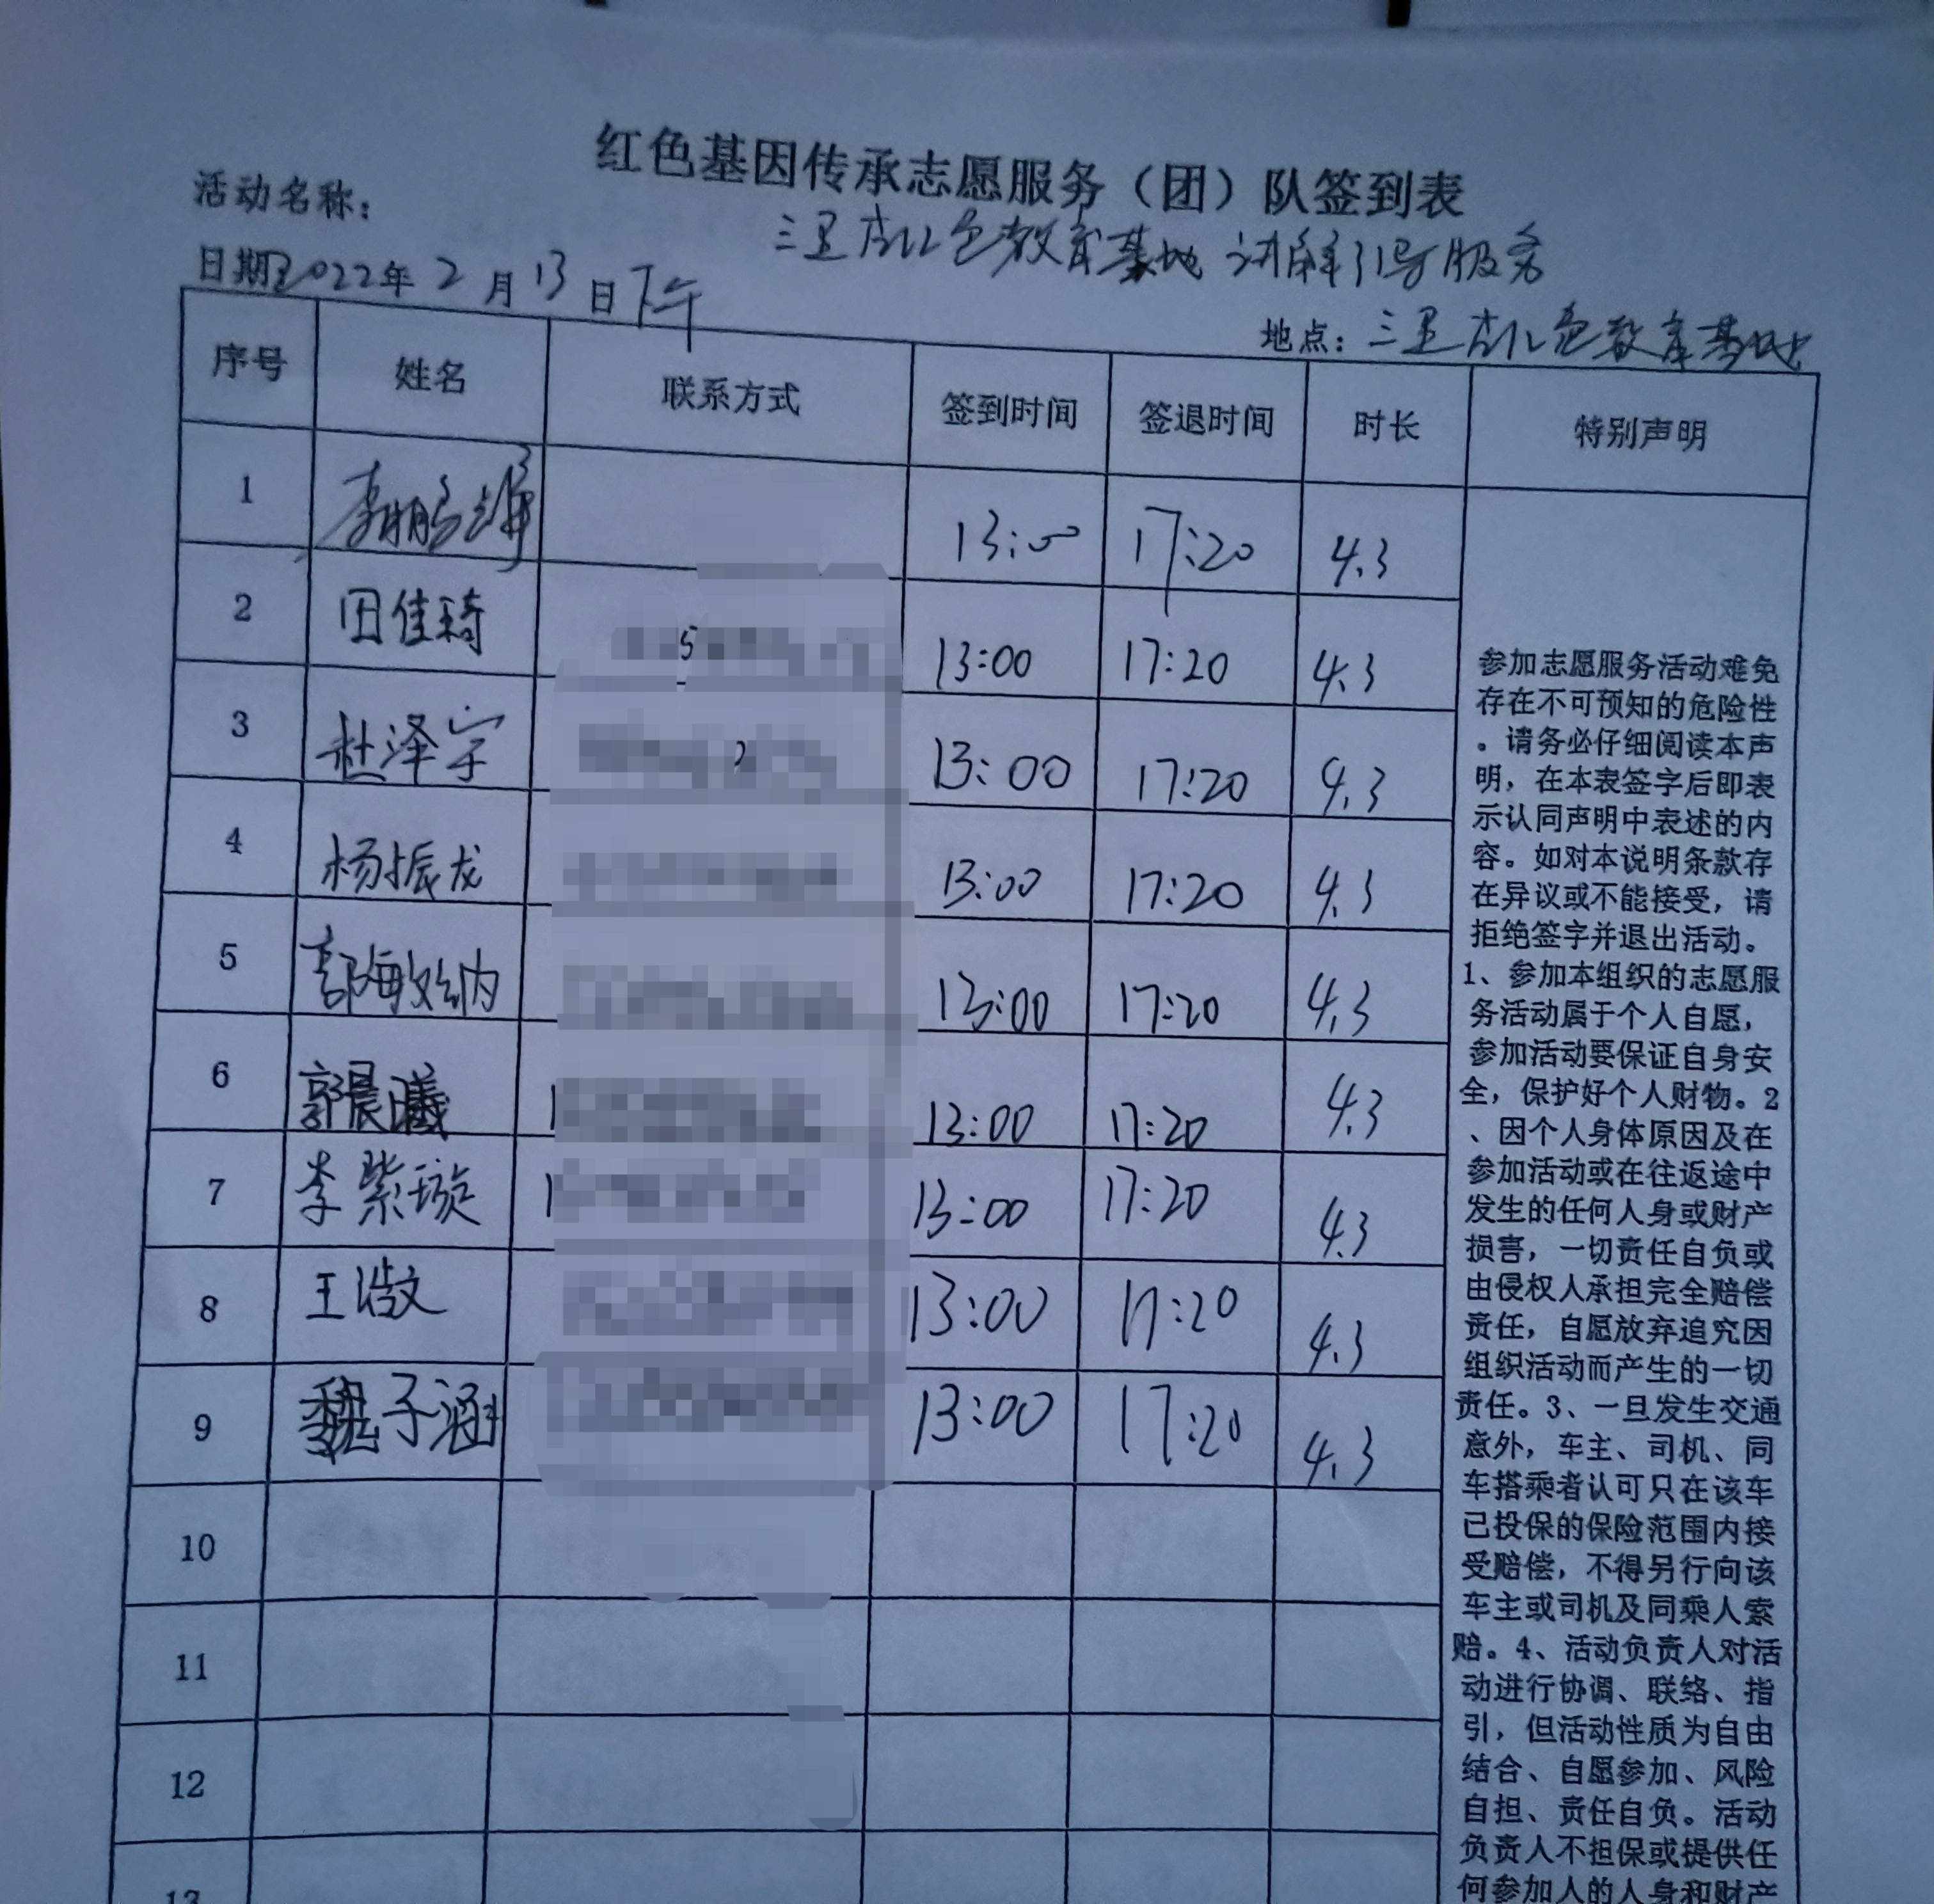 红色基因传承志愿服务（团）队签到表
活动名称： 三里店红色教育基地讲解引导服务
日期 2022年 2 月 13 日下午
地点：三里店红色教育基地
序号 姓名 联系方式 签到时间 签退时间 时长 特别声明
1 李鹏 13:00 17:20 4.3
2 田佳琦 13:00 17:20 4.3
3 杜泽宇 13:00 17:20 4.3
4 杨振龙 13:00 17:20 4.3
5 郭 13:00 17:20 4.3
6 郭晨曦 13:00 17:20 4.3
7 李紫璇 13:00 17:20 4.3
8 王浩文 13:00 17:20 4.3
9 魏子涵 13:00 17:20 4.3
10
11
12
13
参加志愿服务活动难免
存在不可预知的危险性
。请务必仔细阅读本声
明，在本表签字后即表
示认同声明中表述的内
容。如对本说明条款存
在异议或不能接受，请
拒绝签字并退出活动。
1、参加本组织的志愿服
务活动属于个人自愿，
参加活动要保证自身安
全，保护好个人财物。2
、因个人身体原因及在
参加活动或在往返途中
发生的任何人身或财产
损害，一切责任自负或
由侵权人承担完全赔偿
责任，自愿放弃追究因
组织活动而产生的一切
责任。3、一旦发生交通
意外，车主、司机、同
车搭乘者认可只在该车
已投保的保险范围内接
受赔偿，不得另行向该
车主或司机及同乘人索
赔。4、活动负责人对活
动进行协调、联络、指
引，但活动性质为自由
结合、自愿参加、风险
自担、责任自负。活动
负责人不担保或提供任
何参加人的人身和财产